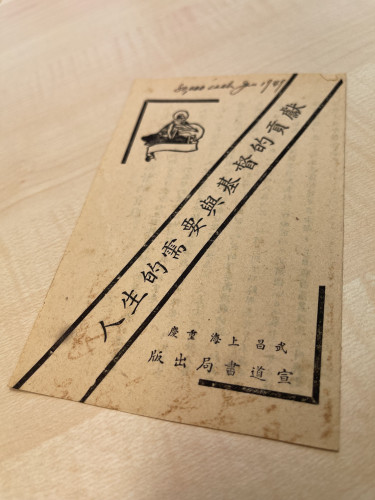 人生的需要與基督的貢獻
武昌上海重慶
宣道書局出版